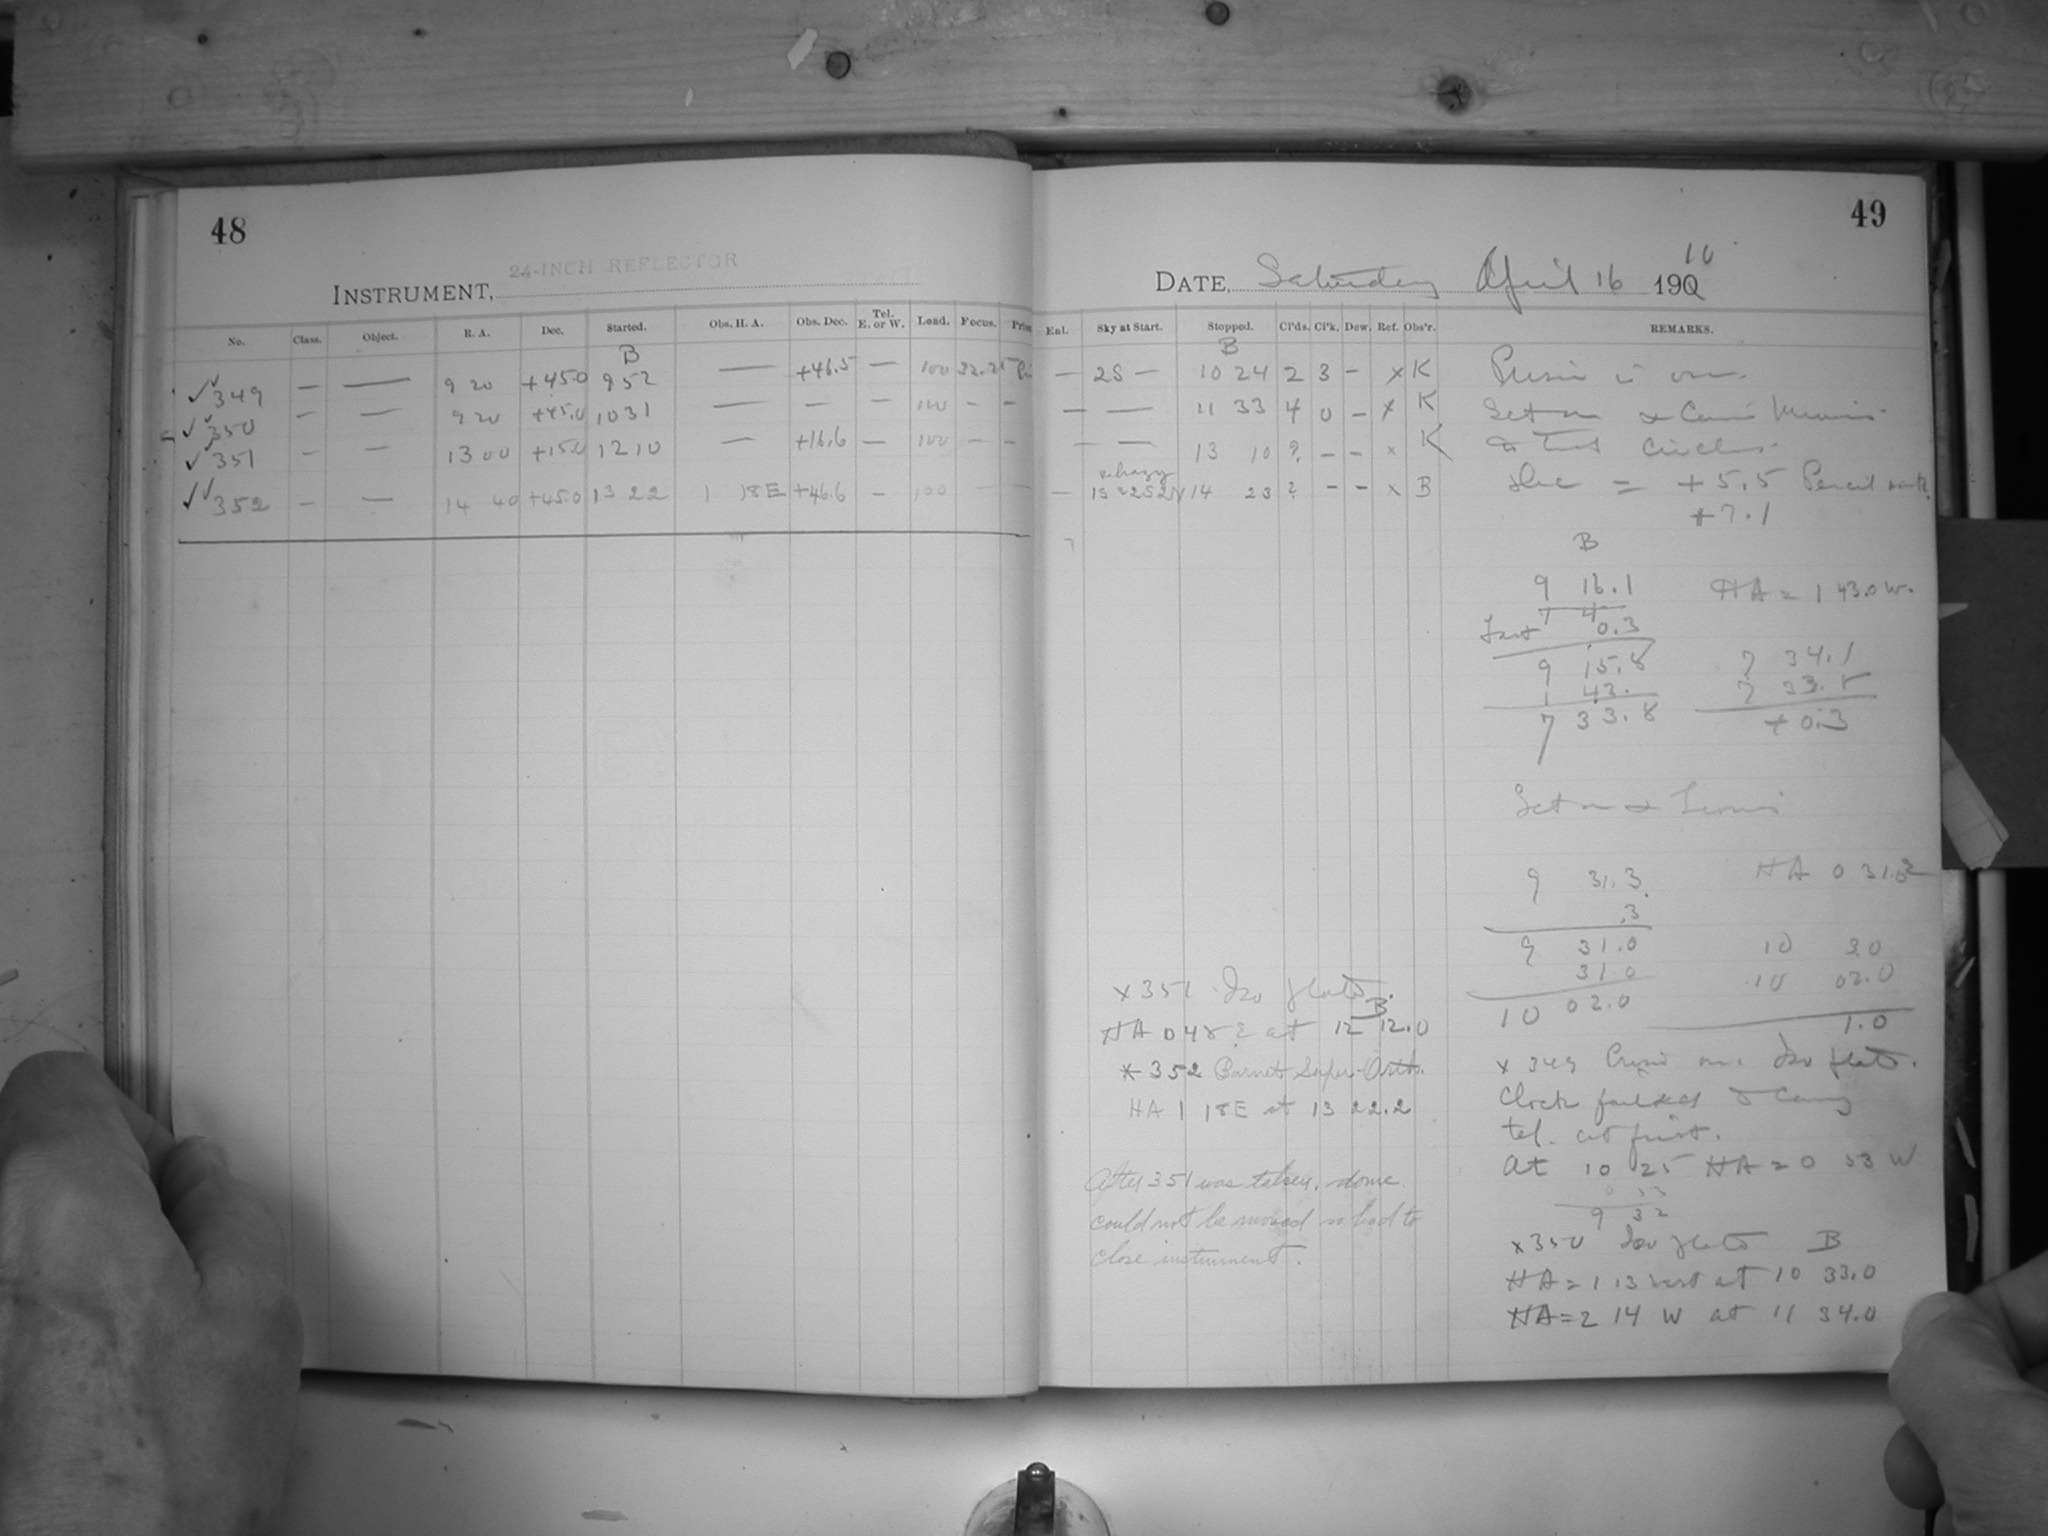 48
24-INCH REFLECTOR
INSTRUMENT,
No. Class. Object. R. A. Dec. Started. Obs. H. A. Obs. Dec. Tel. E. or W. Load. Focus.
B
349 — — 9 20 +45.0 9 52 — +46.5 — 100
350 — — 9 20 +45.0 10 31 — — — 100 — —
351 — — 13 00 +15.0 12 10 — +16.6 — 100 — —
352 — — 14 40 +45.0 13 22 1 18E +46.6 — 100 — —
49
DATE, Saturday April 16 1910
Enl. Sky at Start. Stopped. Cl'ds. Cl'k. Dew. Ref. Obs'r. REMARKS.
B
— 2S — 10 24 2 3 — x K
— — 11 33 4 0 — x K Set on
— — 13 10 ? — — x K Circles
hazy
— 14 23 ? — — x B = +5.5 Pencil mark
+7.1
B
9 16.1 HA = 1 43.0 W.
Fast 0.3
9 15.8 7 34.1
1 43. 7 33.8
7 33.8 +0.3
Set on
9 31.3 HA 0 31.0
.3
9 31.0 10 3.0
31.0 10 02.0
10 02.0 1.0
x 351 Iso plate.
B
HA 0 48 E at 12 12.0
* 352 Barnet Super-Orth.
HA 1 18E at 13 22.2
After 351 was taken, dome
could not be moved so had to
close instrument.
x 349 Iso plate.
Clock failed to carry
tel. at first.
At 10 25 HA = 0 53 W
53
9 32
x 350 Iso plate B
HA = 1 13 west at 10 33.0
HA = 2 14 W at 11 34.0